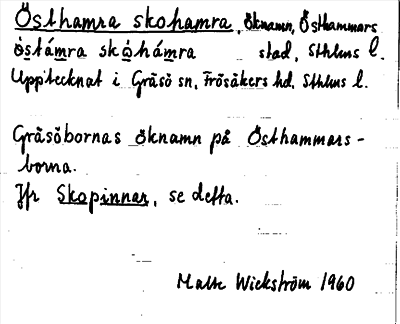 Östhamra skohamra, öknamn, Östhammars
òstámra skòhámra stad, Sthlms l.
Upptecknat i Gräsö sn, Frösåkers hd, Sthlms l.
Gräsöbornas öknamn på Östhammars-
borna.
Jfr Skopinnar, se detta.
Malte Wickström 1960